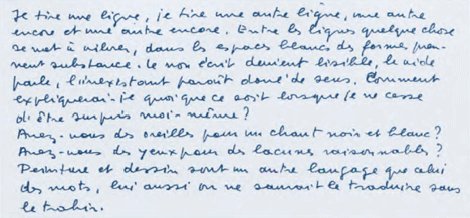 Je tire une ligne, je tire une autre ligne, une autre
encore et une autre encore. Entre les lignes quelque chose
se met à vibrer, dans les espaces blancs des formes pren-
nent substance. Le non écrit devient lisible, le vide
parle, l'inexistant paraît doué de sens. Comment
expliquerai-je quoi que ce soit lorsque je ne cesse
d'être surpris moi-même ?
Avez-vous des oreilles pour un chant noir et blanc ?
Avez-vous des yeux pour des lacunes raisonnables ?
Peinture et dessin sont un autre langage que celui
des mots, lui aussi on ne saurait le traduire sans
le trahir.